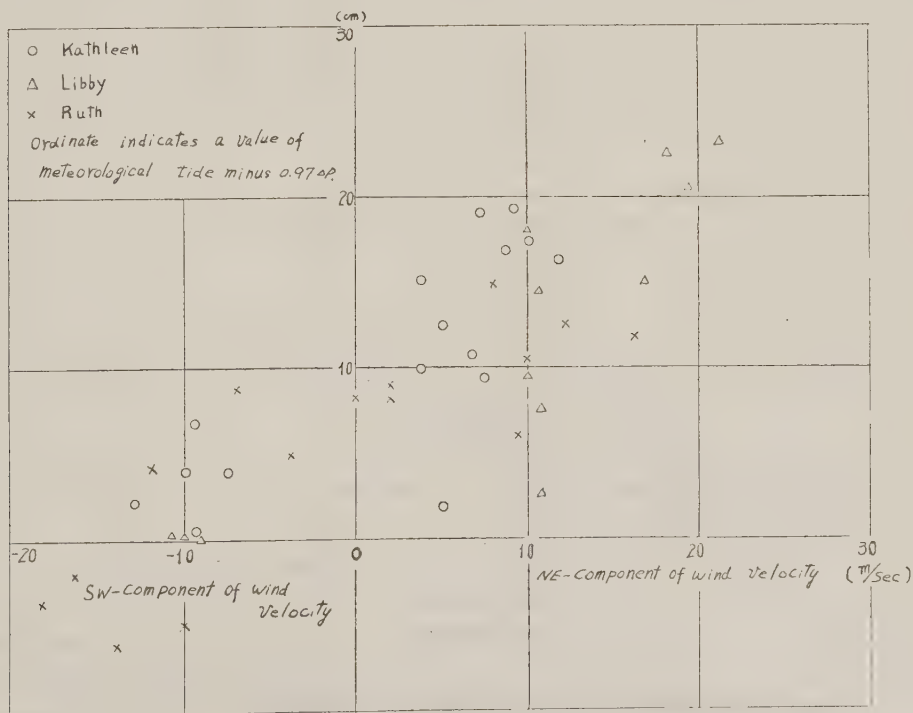 (cm)
30
○ Kathleen
△ Libby
× Ruth
Ordinate indicates a value of
meteorological tide minus 0.97ΔP.
20
10
-20 -10 0 10 20 30
SW-Component of wind
Velocity
NE-Component of wind Velocity (m/Sec)